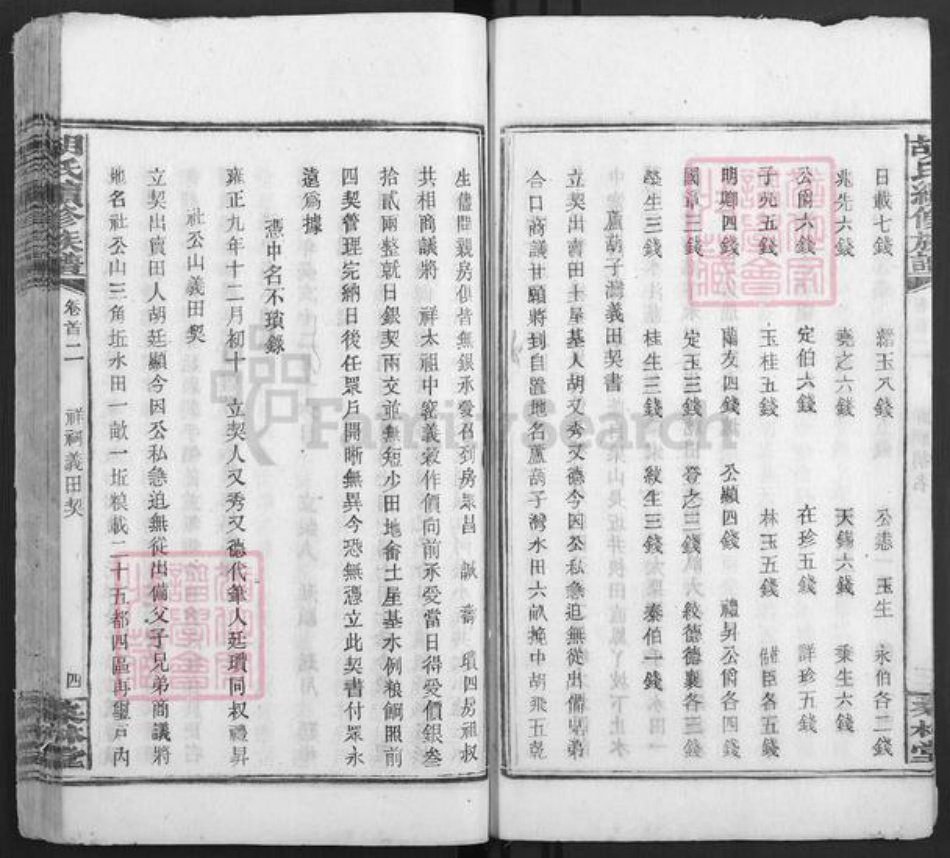 日載七錢 縉玉八錢 公憲一 玉生 永伯各二錢
兆先六錢 堯之六錢 天錫六錢 乘生六錢
公爵六錢 定伯六錢 在珍五錢 詳珍五錢
子先五錢 玉桂五錢 林玉五錢 臣各五錢
明卿四錢 蘭友四錢 公顯四錢 禮昇公爵各四錢
國章三錢 定玉三錢 登之三錢 效德德襄各三錢
墾生三錢 桂生三錢 紋生三錢 泰伯一錢
蘆葫子灣義田契書
立契出賣田土屋基人胡又秀又德今因公私急迫無從出備兄弟
合口商議甘願將到自置地名蘆葫子灣水田六畝挽中胡飛五乾
生儘問親房俱皆無銀承愛召到房眾昌 誠 喬 瓚四房祖叔
共相商議將 祥太祖中窖義穀作價向前承受當日得受價銀叁
拾貳兩整就日銀契兩交並無短少田地畬土屋基水例粮餉照前
四契管理完納日後任眾戶開晰無異今恐無憑立此契書付眾永
遠爲據
憑中名不瑣錄
雍正九年十二月初十 立契人又秀又德代筆人廷瓚同叔禮昇
社公山義田契
立契出賣田人胡廷顯今因公私急迫無從出備父子兄弟商議將
地名社公山三角坵水田一畝一坵粮載二十五都四區再璽戶內
胡氏續修族譜 卷首二 祥祠義田契 四
胡氏續修族譜
FamilySearch